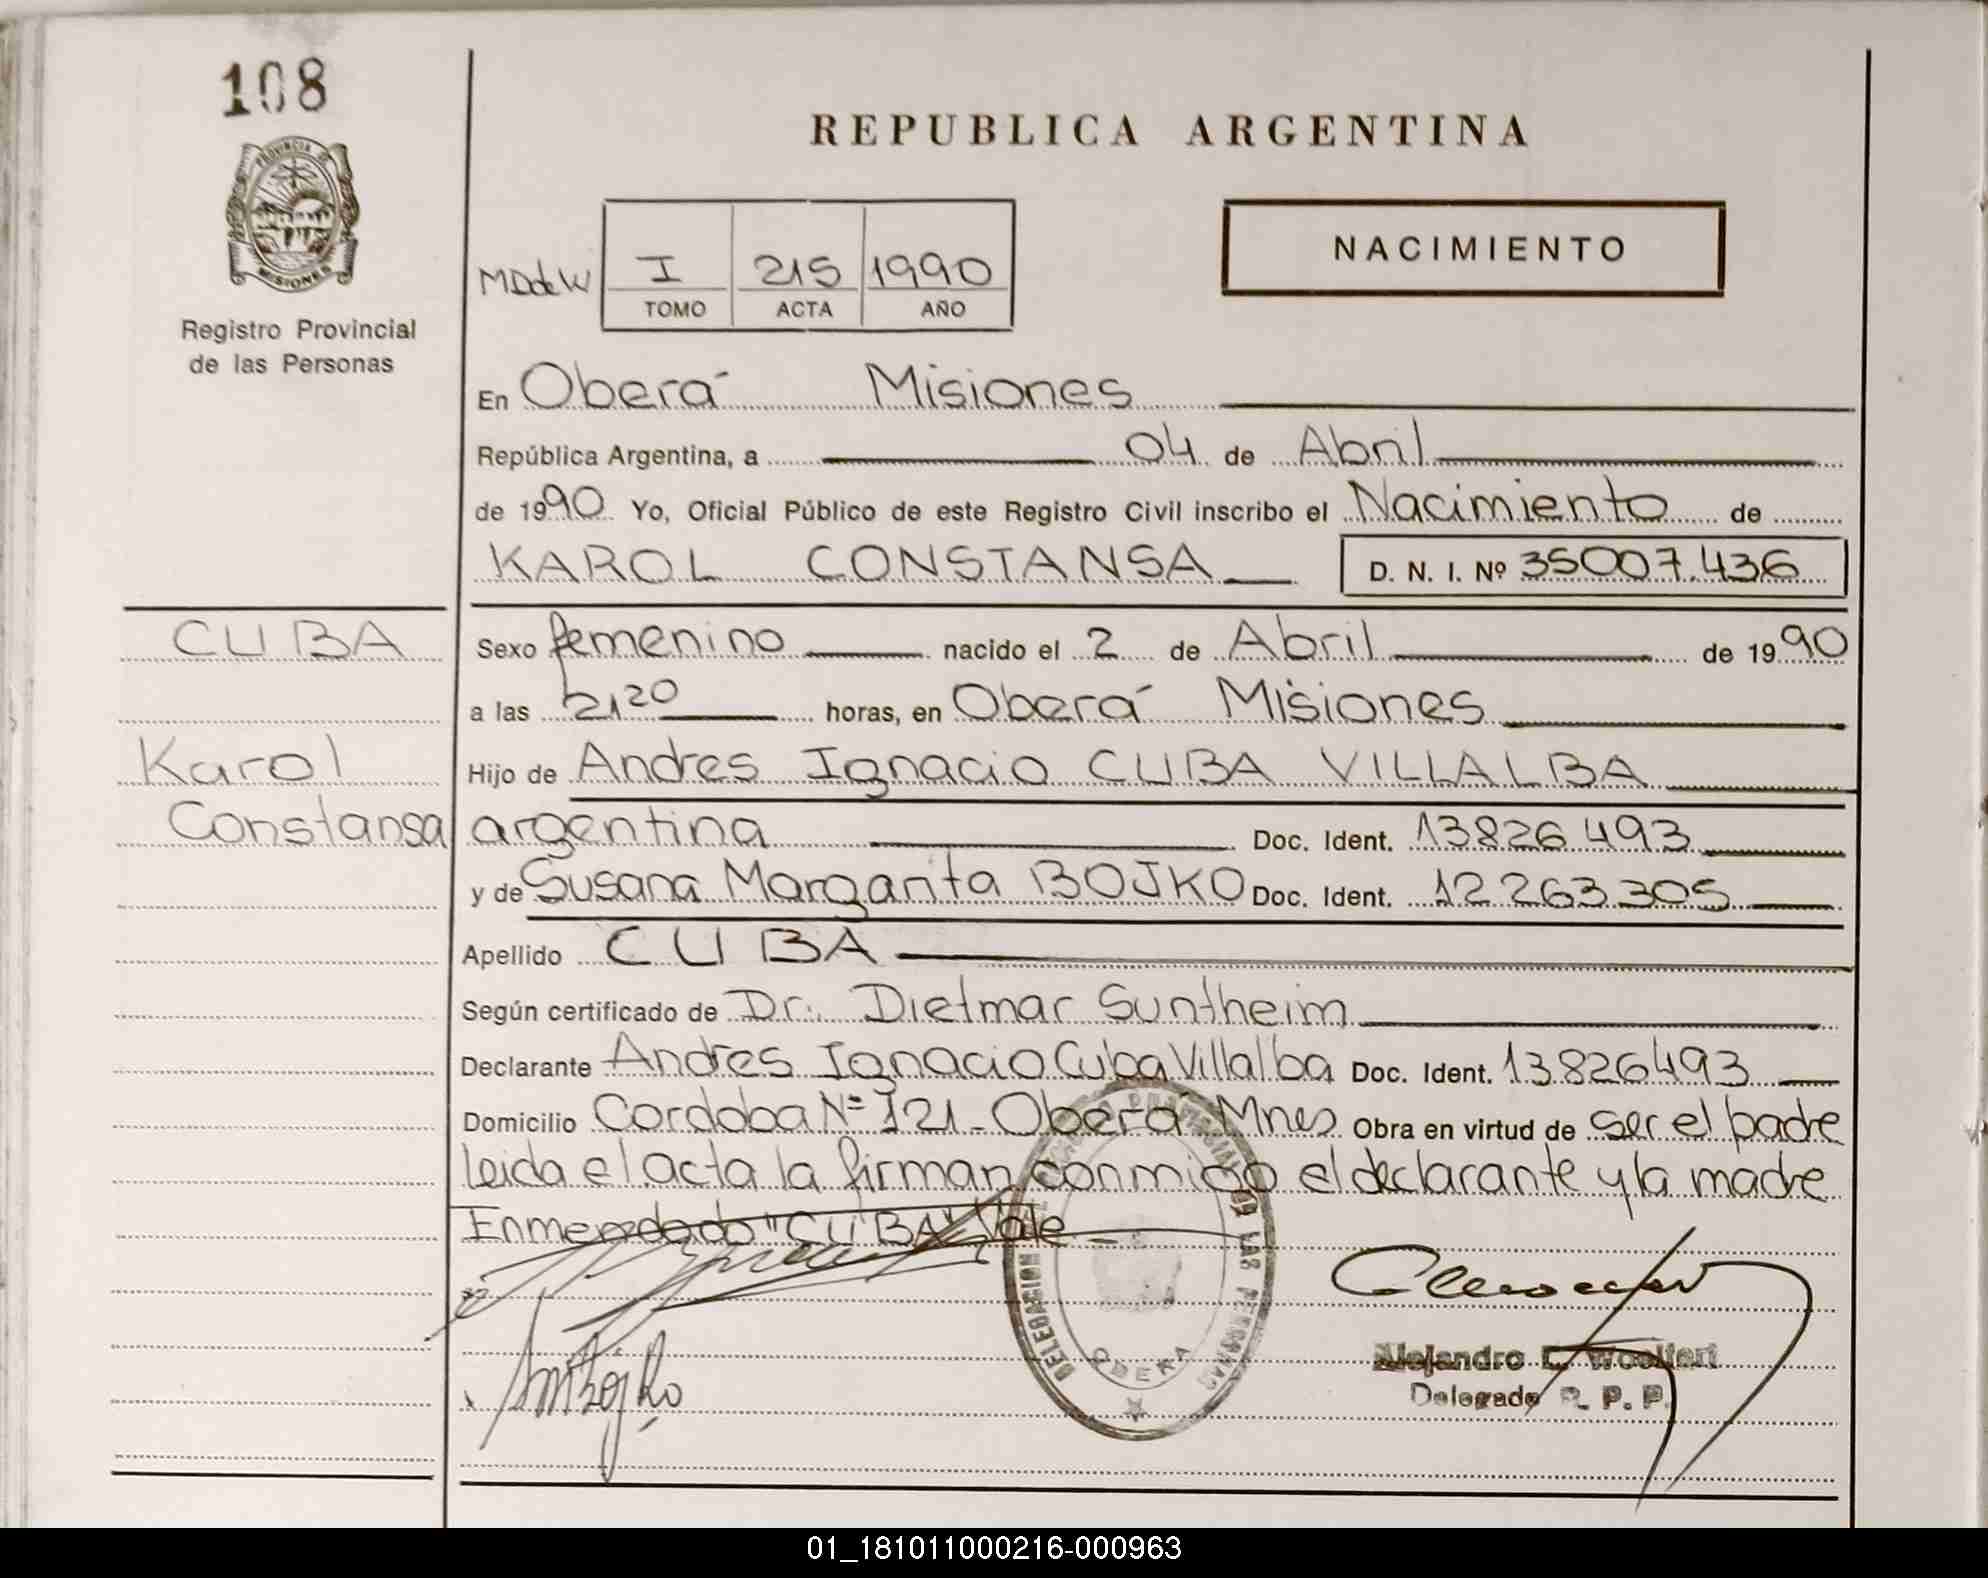 108
PROVINCIA DE
MISIONES
Registro Provincial
de las Personas
REPUBLICA ARGENTINA
NACIMIENTO
MDdeW
I 215 1990
TOMO ACTA AÑO
En Oberá Misiones
República Argentina, a 04 de Abril
de 1990 Yo, Oficial Público de este Registro Civil inscribo el Nacimiento de
KAROL CONSTANSA D. N. I. Nº 35007.436
CUBA
Karol
Constansa
Sexo femenino nacido el 2 de Abril de 1990
a las 2120 horas, en Oberá Misiones
Hijo de Andres Ignacio CUBA VILLALBA
argentina Doc. Ident. 13826493
y de Susana Margarita BOJKO Doc. Ident. 12263305
Apellido CUBA
Según certificado de Dr. Dietmar Suntheim
Declarante Andres Ignacio Cuba Villalba Doc. Ident. 13826493
Domicilio Cordoba Nº 121 - Oberá Mnes Obra en virtud de ser el padre
leida el acta la firman conmigo el declarante y la madre
Enmendado "CUBA" Vale
DELEGACION REGISTRO PROVINCIAL DE LAS PERSONAS
OBERA
Alejandro E. Woolfert
Delegado R. P. P.
01_181011000216-000963